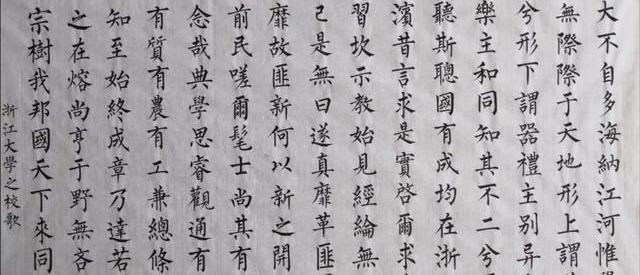 大不自多海納江河惟學
無際際于天地形上謂
兮形下謂器禮主別異
樂主和同知其不二兮
聽斯聰國有成均在浙
濱昔言求是實啓爾求
習坎示教始見經綸無
己是無曰遂真靡革匪
靡故匪新何以新之開
前民嗟爾髦士尚其有
念哉典學思睿觀通有
有質有農有工兼總條
知至始終成章乃達若
之在熔尚亨于野無吝
宗樹我邦國天下來同
浙江大學之校歌